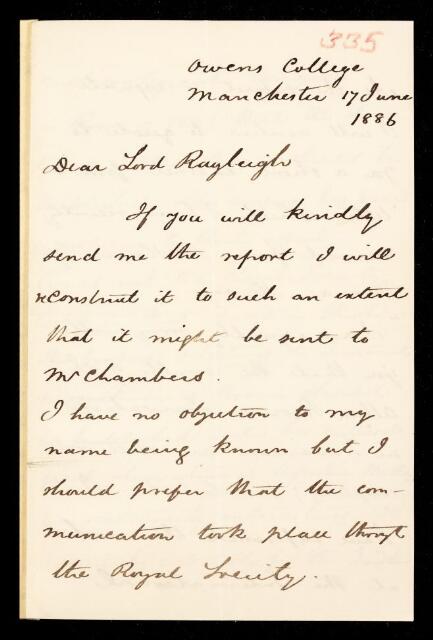 335
Owens College
Manchester 17 June
1886
Dear Lord Rayleigh
If you will kindly
send me the report I will
reconstruct it to such an extent
that it might be sent to
Mr Chambers.
I have no objection to my
name being known but I
should prefer that the com-
munication took place through
the Royal Society.